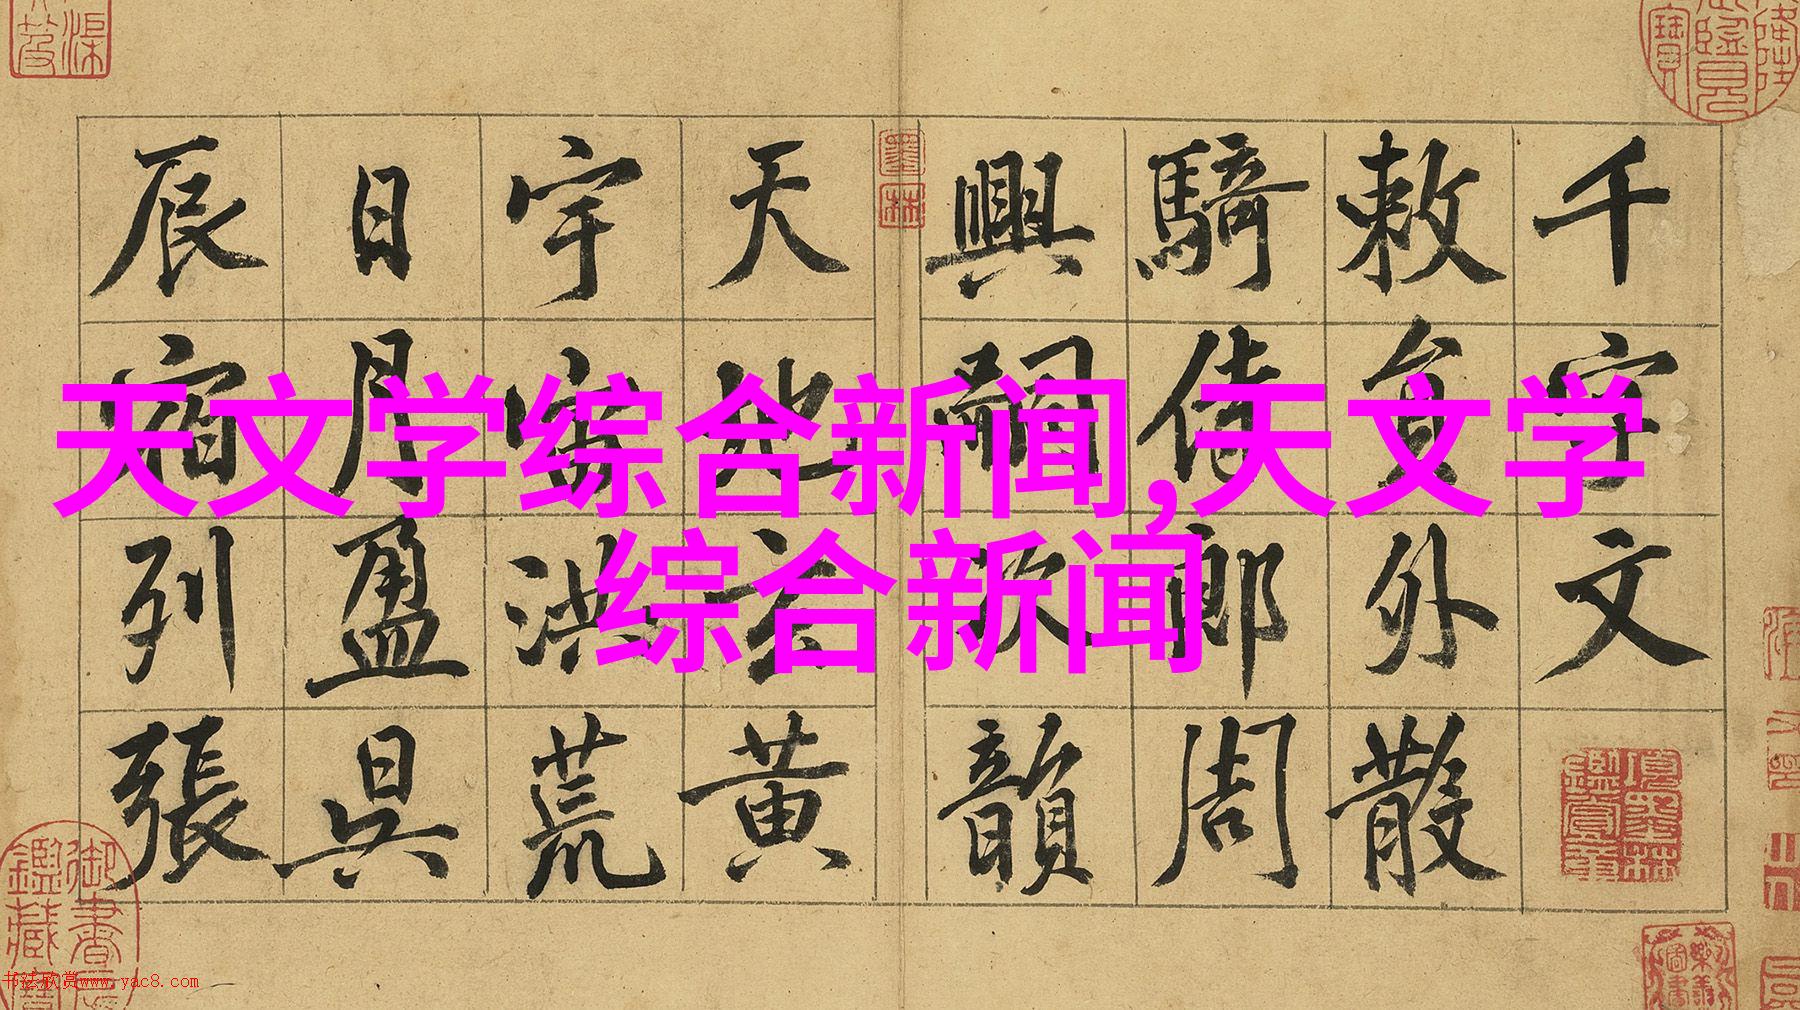 天文学综合新闻,天文学
综合新闻
千字文
敕員外散
騎侍郎周
興嗣次韻
天地玄黄
宇宙洪荒
日月盈昃
辰宿列張
墨林
书法欣赏www.yac8.com